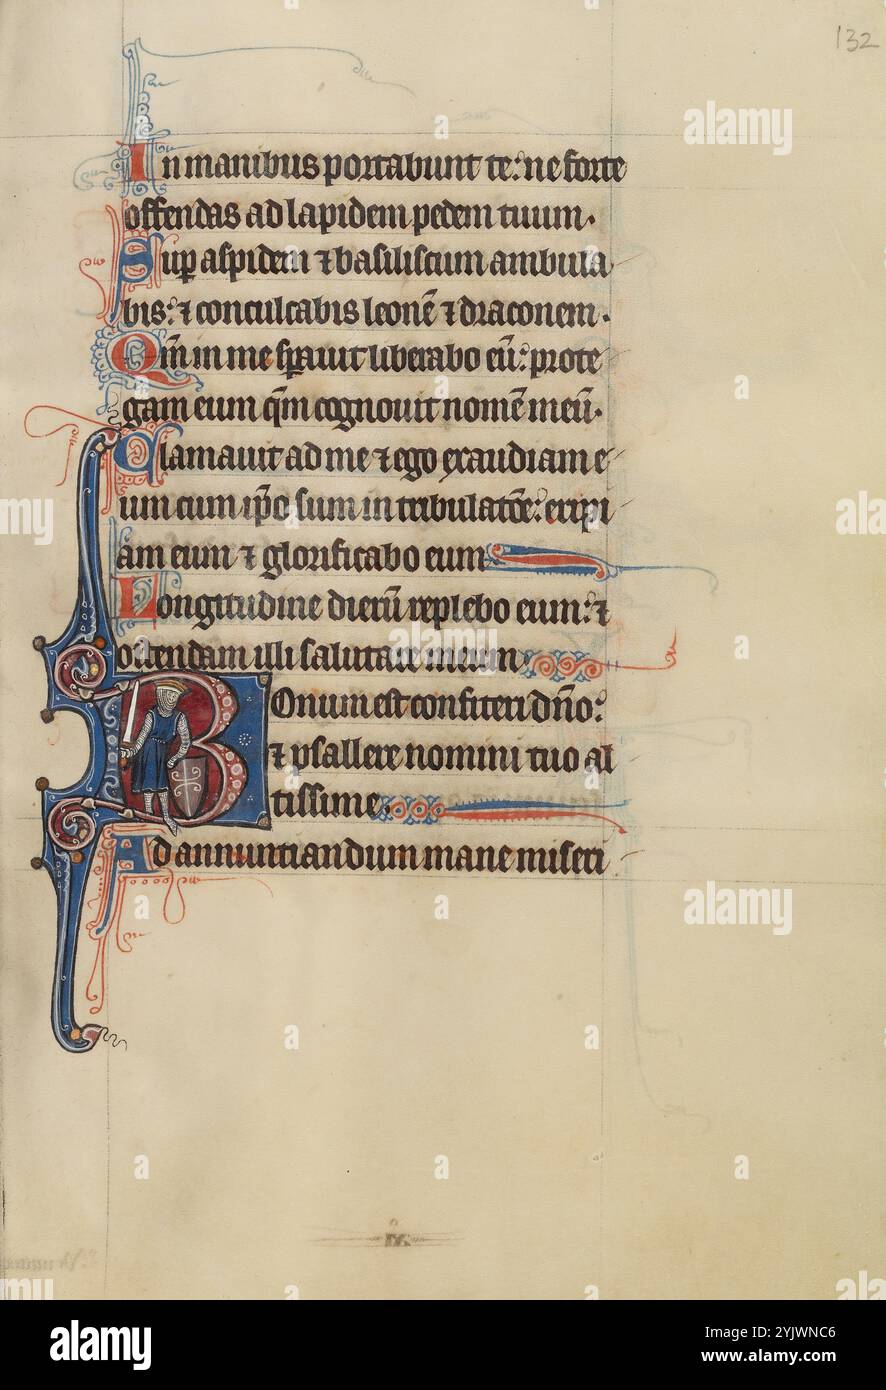 132
In manibus portabunt te: ne forte
offendas ad lapidem pedem tuum.
Sup aspidem ⁊ basiliscum ambula
bis: ⁊ conculcabis leonē ⁊ draconem.
Qm̄ in me sperauit liberabo eū: prote
gam eum qm̄ cognouit nomē meū.
Clamauit ad me ⁊ ego exaudiam e
um cum ip̄o sum in tribulatōe: eripi
am eum ⁊ glorificabo eum
Longitudine dierū replebo eum: ⁊
ostendam illi salutare meum
Bonum est confiteri dn̄o:
⁊ psallere nomini tuo al
tissime.
Ad annuntiandum mane miseri
alamy
alamy
alamy
alamy
alamy
alamy
alamy
Image ID: 2YJWNC6
www.alamy.com